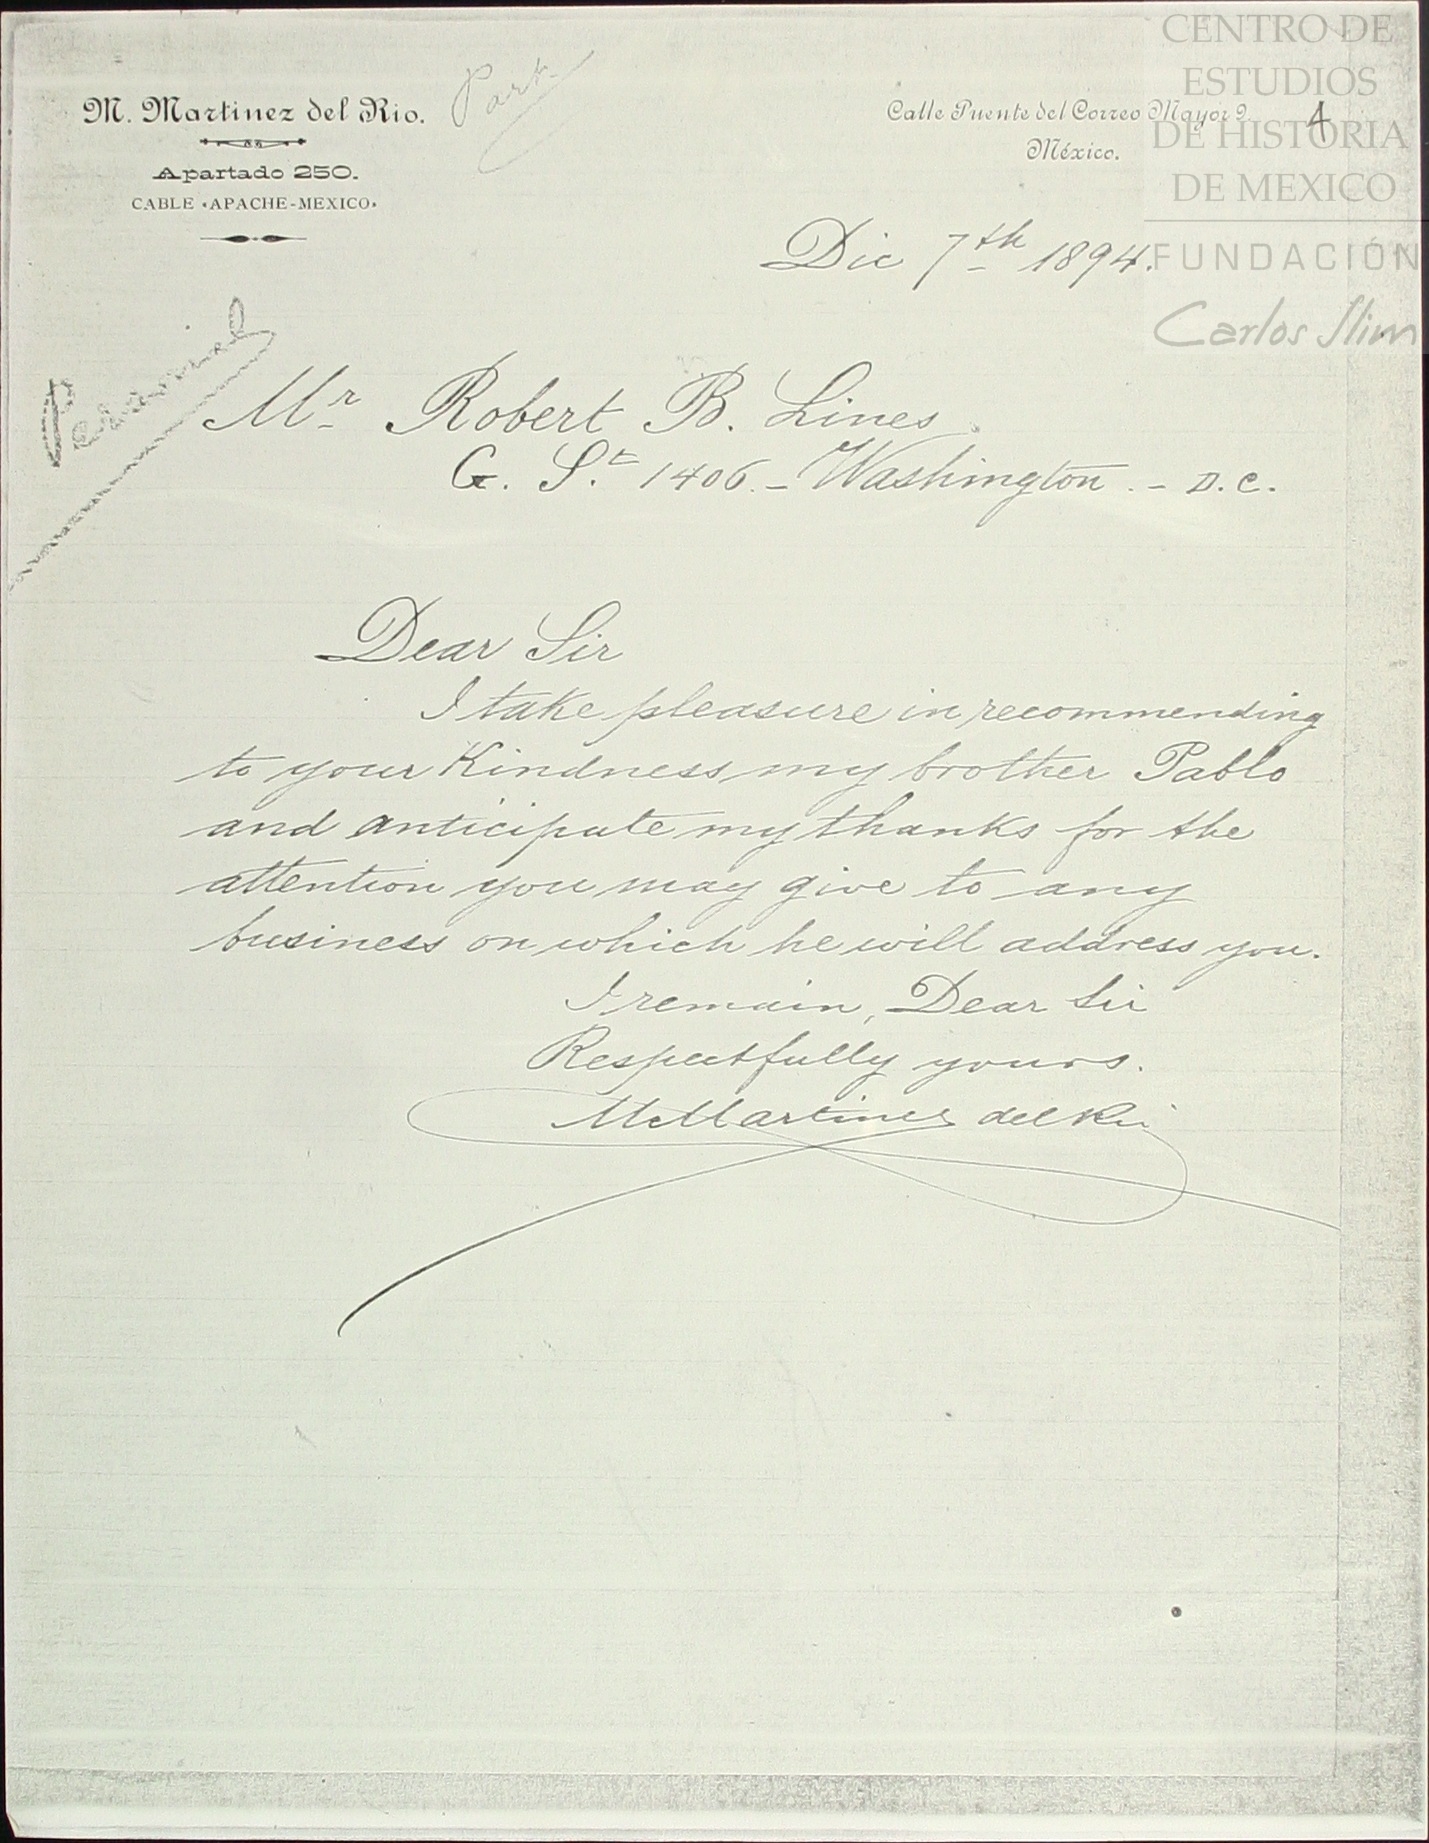 CENTRO DE
ESTUDIOS
DE HISTORIA
DE MEXICO
FUNDACIÓN
Carlos Slim
M. Martinez del Rio.
Apartado 250.
CABLE «APACHE-MEXICO»
Calle Puente del Correo Mayor 9.
México.
4
Dic 7th 1894.
Personal
Mr Robert B. Lines
G. St. 1406. - Washington. - D.C.
Dear Sir
I take pleasure in recommending
to your Kindness my brother Pablo
and anticipate my thanks for the
attention you may give to any
business on which he will address you.
I remain, Dear Sir
Respectfully yours.
M Martinez del Rio